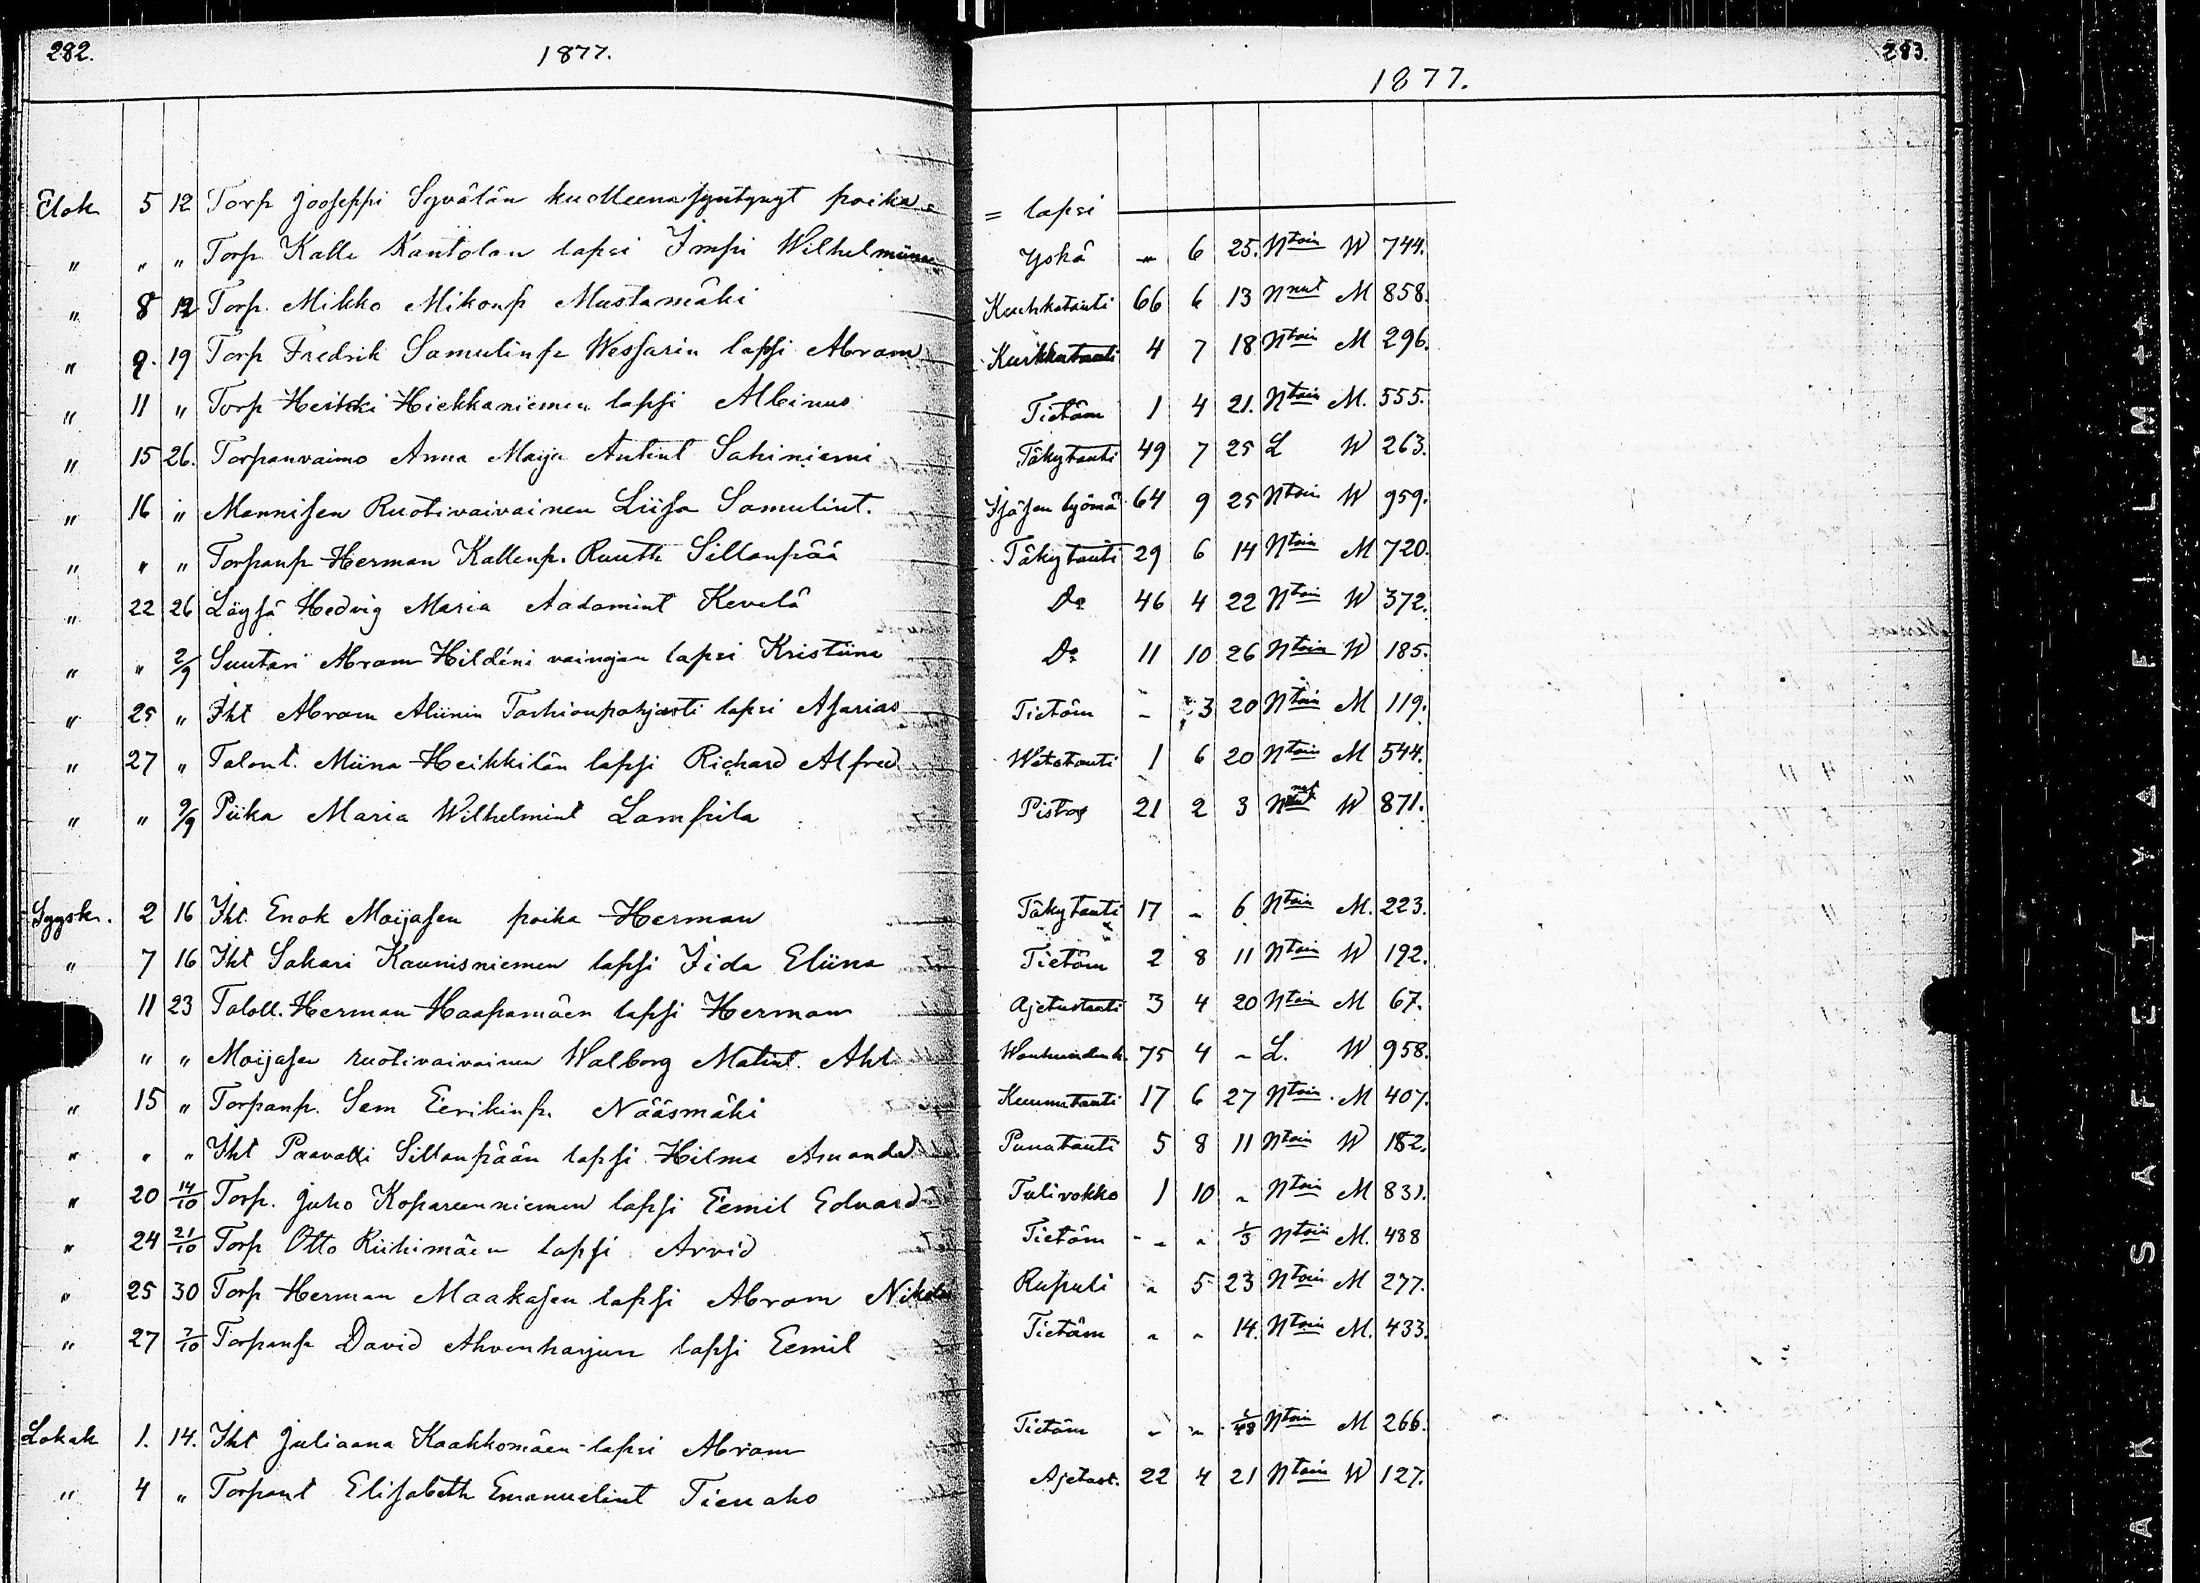 282. 1877.
1877. 283.
Elok 5 12 Torp Jooseppi Syvälän kuolleena syntynyt poika = = lapsi
" " " Torp Kalle Kantolan lapsi Impi Wilhelmiina Yskä " 6 25. Ntoin W 744.
" 8 12 Torp. Mikko Mikonp Mustamäki Keuhkotauti 66 6 13 Nnut M 858.
" 9. 19 Torp Fredrik Samulinp Wessarin lapsi Abram Kurkkutauti 4 7 18 Ntoin M 296.
" 11 " Torp Heikki Hiekkaniemen lapsi Albinus Tietäm 1 4 21. Ntoin M. 555.
" 15 26. Torpanvaimo Anna Maija Antint Sahiniemi Täkytauti 49 7 25 L W 263.
" 16 " Mennisen Ruotivaivainen Liisa Samulint. Isäsen lyömä 64 9 25 Ntoin W 959.
" " " Torpanp Herman Kallenp. Ruuth Sillanpää Täkytauti 29 6 14 Ntoin M 720.
" 22 26 Läysä Hedvig Maria Aadamint Kevelä Do 46 4 22 Ntoin W 372.
" " 2/9 Suutari Abram Hildéni vainajan lapsi Kristiina Do 11 10 26 Ntoin W 185.
" 25 " Iht Abram Aliinin lapsi Asarias Tietäm - 3 20 Ntoin M 119.
" 27 " Talont. Miina Heikkilän lapsi Richard Alfred Wetotauti 1 6 20 Ntoin M 544.
" " 9/9 Piika Maria Wilhelmint Lamfila Pistos 21 2 3 Nnut W 871.
Syysk. 2 16 Iht. Enok Maijasen poika Herman Täkytauti 17 - 6 Ntoin M. 223.
" 7 16 Iht Sakari Kaunisniemen lapsi Iida Eliina Tietäm 2 8 11 Ntoin W 192.
11 23 Taloll. Herman Haapamäen lapsi Herman Ajetustauti 3 4 20 Ntoin M 67.
" " Maijasen ruotivaivainen Walborg Matint. Aht Wanhuudenh. 75 4 - L. W 958.
" 15 " Torpanp. Sem Eerikinp. Nääsmäki Kuumetauti 17 6 27 Ntoin. M 407.
" " " Iht Paavalli Sillanpään lapsi Hilma Amanda Punatauti 5 8 11 Ntoin W 182.
" 20 14/10 Torp. Juho Kopareenniemen lapsi Eemil Eduard Tulirokko 1 10 - Ntoin M 831.
" 24 21/10 Torp Otto Riihimäen lapsi Arvid Tietäm - - - 1/3 Ntoin M. 488
" 25 30 Torp Herman Maakasen lapsi Abram Rupuli - 5 23 Ntoin M 277.
" 27 7/10 Torpanp David Ahvenharjun lapsi Eemil Tietäm - - 14. Ntoin M. 433.
Lokak 1. 14. Iht Juliaana Kaakkomäen lapsi Abram Tietäm - - Ntoin M 266.
" 4 " Torpant Elisabeth Emanuelint Tienaho Ajetust. 22 4 21 Ntoin W 127.
SAFETY FILM
AK